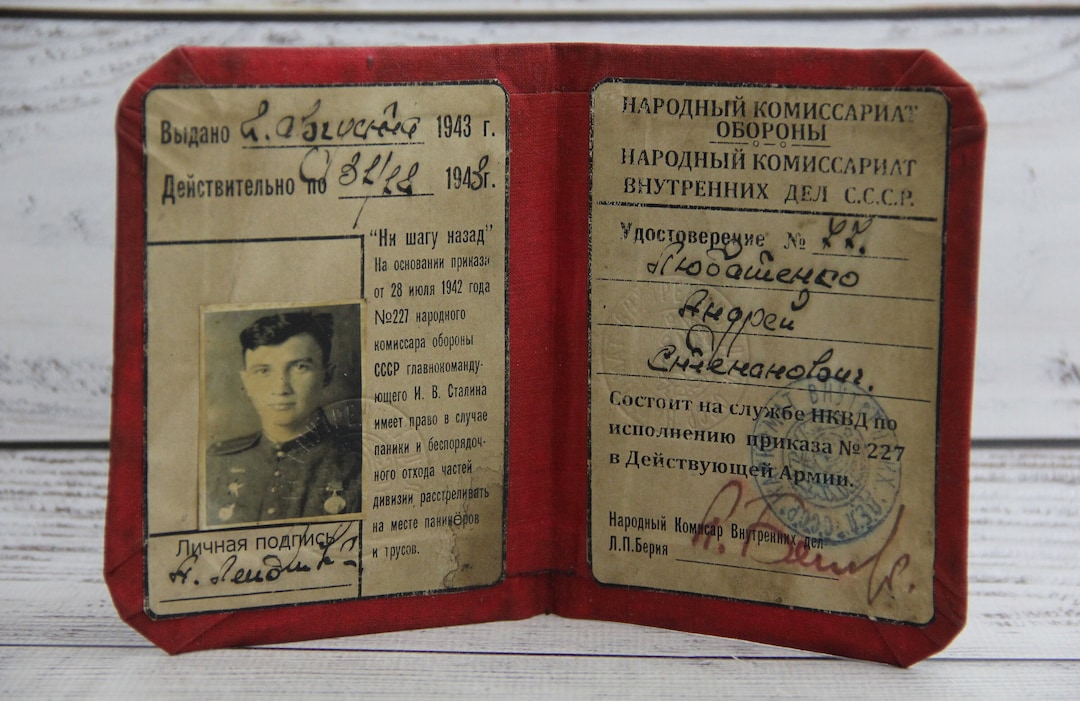 Выдано 2. августа 1943 г.
Действительно по 31/12 1943г.
"Ни шагу назад"
На основании приказа
от 28 июля 1942 года
№227 народного
комиссара обороны
СССР главнокоманду-
ющего И. В. Сталина
имеет право в случае
паники и беспорядоч-
ного отхода частей
дивизии расстреливать
на месте паникёров
и трусов.
Личная подпись
НАРОДНЫЙ КОМИССАРИАТ
ОБОРОНЫ
НАРОДНЫЙ КОМИССАРИАТ
ВНУТРЕННИХ ДЕЛ С.С.С.Р.
Удостоверение №
Любашенко
Андрей
Степанович.
Состоит на службе НКВД по
исполнению приказа № 227
в Действующей Армии.
Народный Комисар Внутренних дел
Л.П.Берия